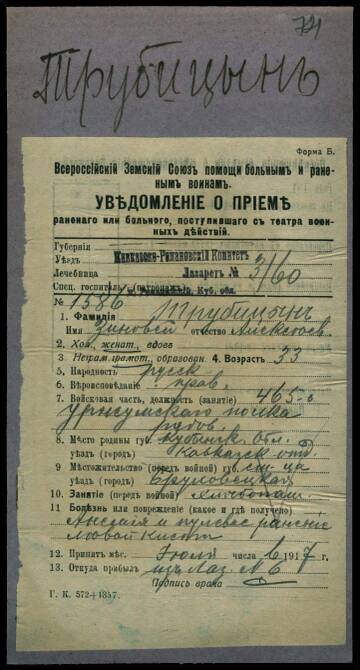 721
Трубицынъ
Форма Б.
Всероссійскій Земскій Союзъ помощи больнымъ и ране-
нымъ воинамъ.
УВѢДОМЛЕНІЕ О ПРІЕМѢ
раненаго или больного, поступившаго съ театра воен-
ныхъ дѣйствій.
Губернія
Уѣздъ Кавказско-Романовскій Комитетъ
Лечебница Лазаретъ № 3/60
Спец. госпиталь (патронажъ) Куб. обл.
№ 1586
1. Фамилія Трубицынъ
Имя Зиновей отчество Алексѣев.
2. Хол., женат., вдовъ
3. Неграм. грамот., образован. 4. Возрастъ 33
5. Народность русск
6. Вѣроисповѣданіе прав.
7. Войсковая часть, должность (занятіе) 465-о
Уржумскаго полка
рядов.
8. Мѣсто родины губ. Кубанск. Обл.
уѣздъ (городъ) Кавказск. отд.
9 Мѣстожительство (передъ войной) губ. ст-ца
уѣздъ (городъ)
10. Занятіе (передъ войной) хлѣбопаш.
11 Болѣзнь или поврежденіе (какое и гдѣ получено)
и пулевое раненіе
лѣвой кисти
12. Принятъ мѣс. Іюля числа 6 1917 г.
13. Откуда прибылъ изъ Лаз. № 6
Подпись врача
Г. К. 572+1357.